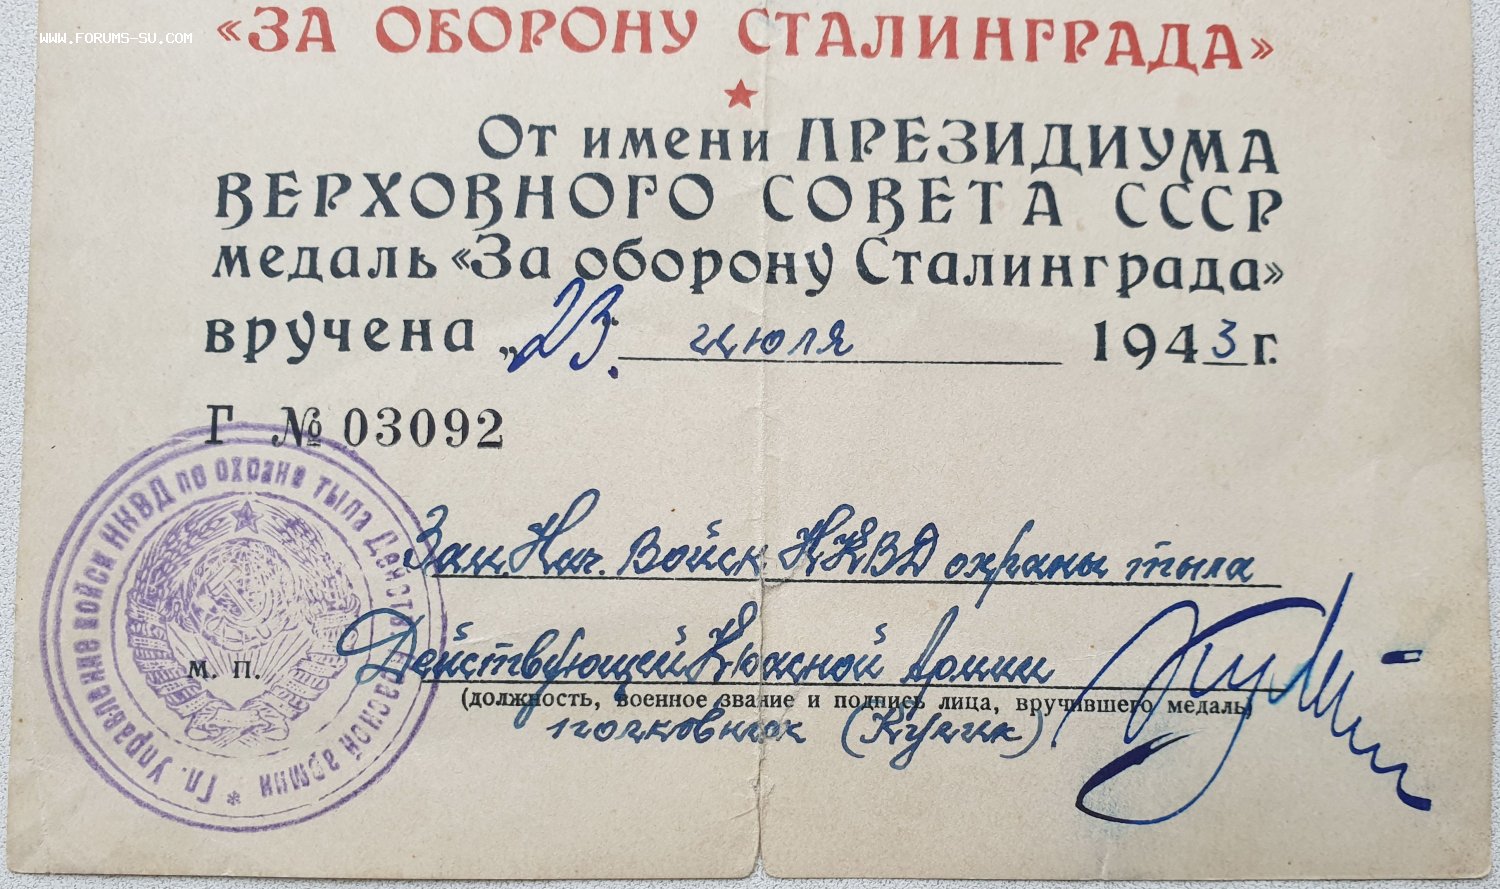 WWW.FORUMS-SU.COM
«ЗА ОБОРОНУ СТАЛИНГРАДА»
От имени ПРЕЗИДИУМА
ВЕРХОВНОГО СОВЕТА СССР
медаль «За оборону Сталинграда»
вручена „23. июля 1943 г.
Г № 03092
Гл. Управление войск НКВД по охране тыла Действ. Красной армии *
Зам. Нач. Войск НКВД охраны тыла
М. П.
Действующей Красной Армии
(должность, военное звание и подпись лица, вручившего медаль)
полковник (Кулик)